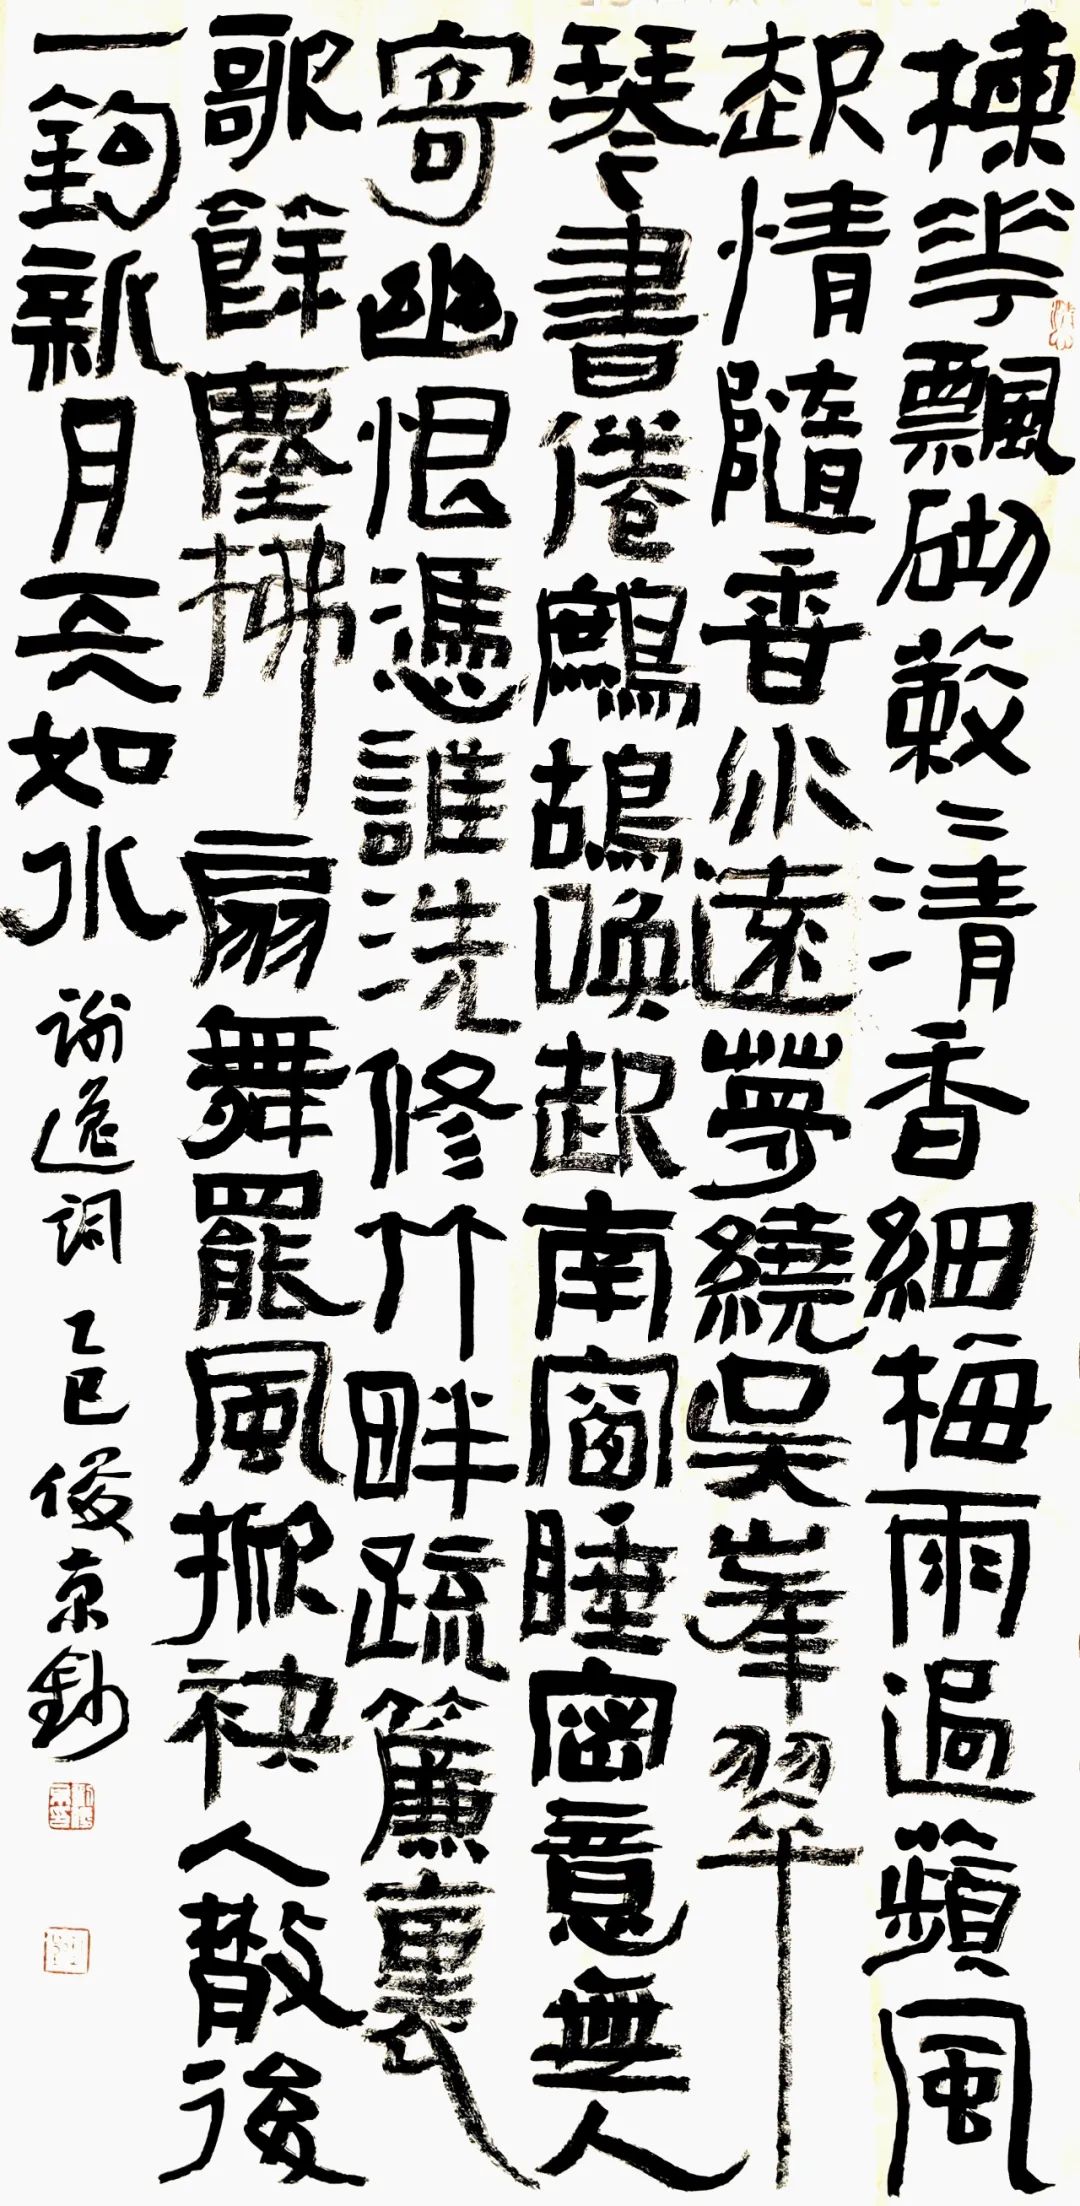 楝華飄砌蔌〻清香細梅雨過蘋風
起情隨香水遠夢繞吳峯翠
琴書倦鷓鴣喚起南窗睡密意無人
寄幽恨憑誰洗修竹畔疏簾裏
歌餘塵拂扇舞罷風掀袂人散後
一鉤新月天如水 謝逸詞 乙巳 俊京鈔